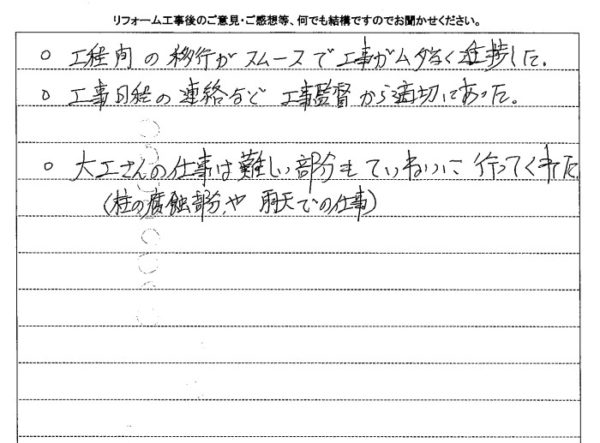 リフォーム工事後のご意見・ご感想等、何でも結構ですのでお聞かせください。
○ 工程間の移行がスムースで工事がムダなく進捗した。
○ 工事日程の連絡など工事監督から適切にあった。
○ 大工さんの仕事は難しい部分もていねいに行ってくれた。
(柱の腐蝕部分や雨天での仕事)